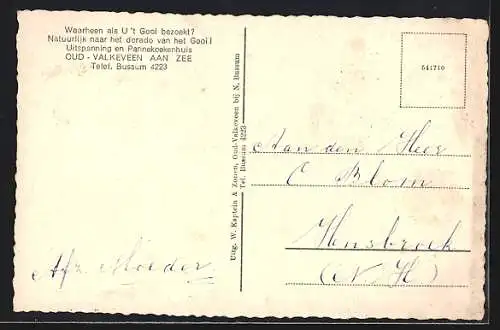 Waarheen als U 't Gooi bezoekt?
Natuurlijk naar het dorado van het Gooi!
Uitspanning en Pannekoekenhuis
OUD - VALKEVEEN AAN ZEE
Telef. Bussum 4223
Uitg. W. Kaptein & Zonen, Oud-Valkeveen bij N. Bussum
Tel. Bussum 4223
541710
Aan den Heer
C Blom
Hensbroek
(N H)
Afz. Moeder